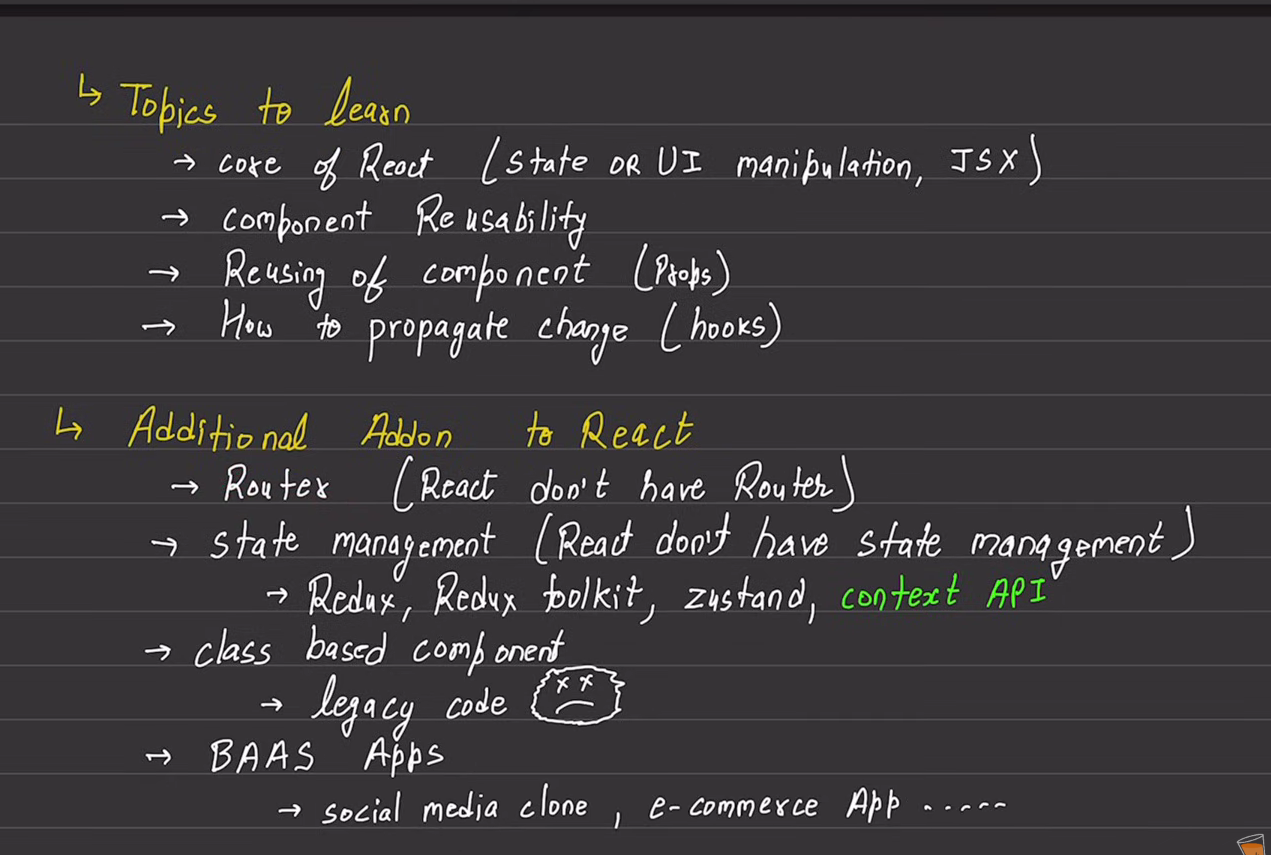 ↳ Topics to learn
→ core of React (state or UI manipulation, JSX)
→ component Reusability
→ Reusing of component (Props)
→ How to propagate change (hooks)
↳ Additional Addon to React
→ Router (React don't have Router)
→ state management (React don't have state management)
→ Redux, Redux toolkit, zustand, context API
→ class based component
→ legacy code
→ BAAS Apps
→ social media clone, e-commerce App .....